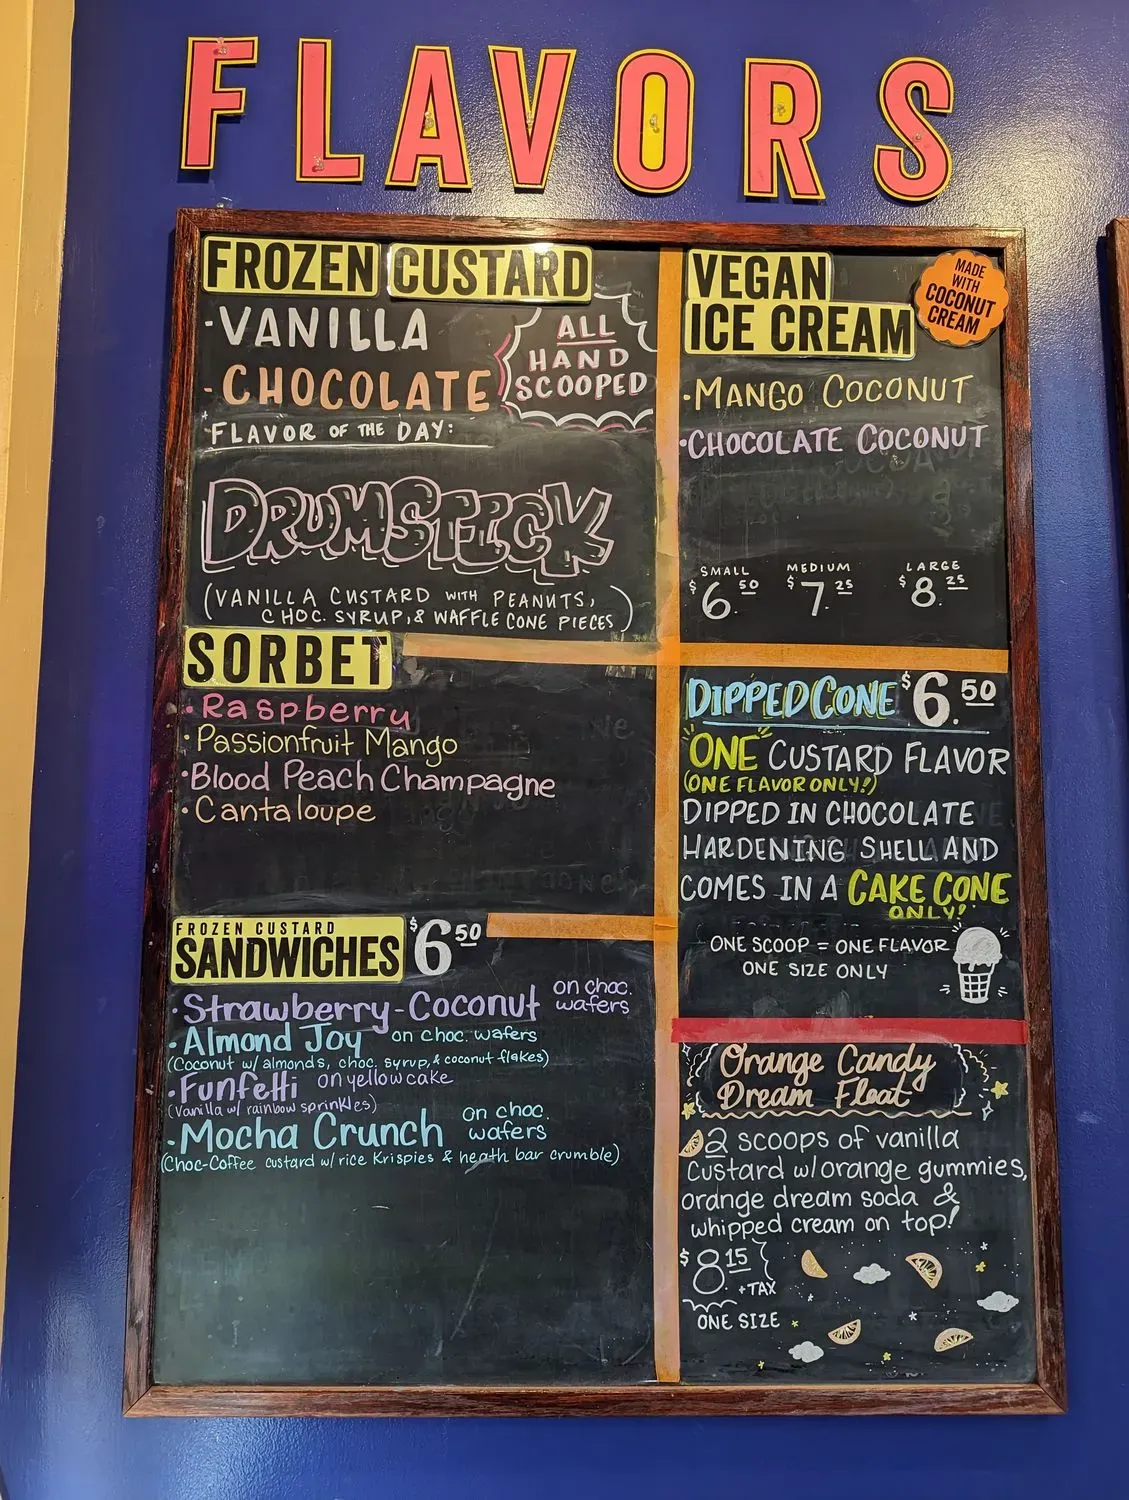 FLAVORS
FROZEN CUSTARD
·VANILLA
·CHOCOLATE
ALL
HAND
SCOOPED
FLAVOR OF THE DAY:
DRUMSTICK
(VANILLA CUSTARD WITH PEANUTS,
CHOC. SYRUP, & WAFFLE CONE PIECES)
SORBET
·Raspberry
·Passionfruit Mango
·Blood Peach Champagne
·Cantaloupe
FROZEN CUSTARD
SANDWICHES $6 50
·Strawberry-Coconut on choc. wafers
·Almond Joy on choc. wafers
(Coconut w/ almonds, choc. syrup, & coconut flakes)
·Funfetti on yellow cake
(Vanilla w/ rainbow sprinkles)
·Mocha Crunch on choc. wafers
(Choc-Coffee custard w/ rice Krispies & heath bar crumble)
VEGAN
ICE CREAM
MADE
WITH
COCONUT
CREAM
·MANGO COCONUT
·CHOCOLATE COCONUT
SMALL MEDIUM LARGE
$6.50 $7.25 $8.25
DIPPED CONE $6.50
"ONE" CUSTARD FLAVOR
(ONE FLAVOR ONLY!)
DIPPED IN CHOCOLATE
HARDENING SHELL AND
COMES IN A CAKE CONE
ONLY!
ONE SCOOP = ONE FLAVOR
ONE SIZE ONLY
Orange Candy
Dream Float
2 scoops of vanilla
custard w/orange gummies,
orange dream soda &
whipped cream on top!
$8.15
+TAX
ONE SIZE